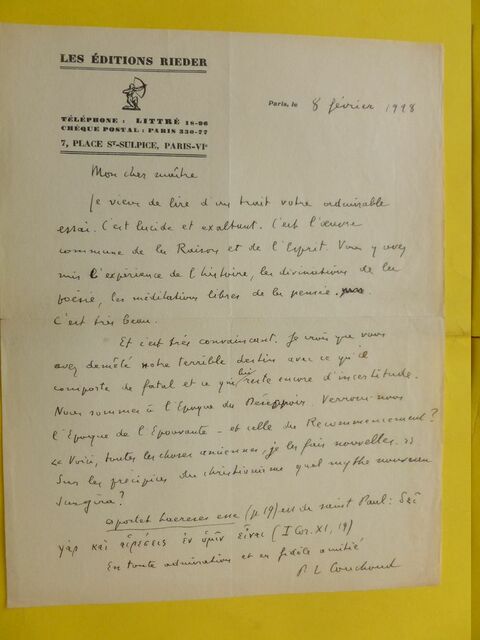 LES ÉDITIONS RIEDER
TÉLÉPHONE : LITTRÉ 18-06
CHÈQUE POSTAL : PARIS 330-77
7, PLACE ST-SULPICE, PARIS-VIe
Paris, le 8 février 1928
Mon cher maître
Je viens de lire d'un trait votre admirable
essai. C'est lucide et exaltant. C'est l'œuvre
commune de la Raison et de l'Esprit. Vous y avez
mis l'expérience de l'histoire, les divinations de la
poésie, les méditations libres de la pensée.
C'est très beau.
Et c'est très convaincant. Je crois que vous
avez démêlé notre terrible destin avec ce qu'il
comporte de fatal et ce qui reste encore d'incertitude.
Nous sommes à l'Epoque du Désespoir. Verrons-nous
l'Epoque de l'Epouvante – et celle du Recommencement ?
« Voici, toutes les choses anciennes, je les fais nouvelles. »
Sur les précipices du christianisme quel mythe nouveau
surgira ?
oportet haereses esse (p. 19) est de saint Paul : Δεῖ
γὰρ καὶ αἱρέσεις ἐν ὑμῖν εἶναι (I Cor. XI, 19)
En toute admiration et en fidèle amitié
P L Couchoud